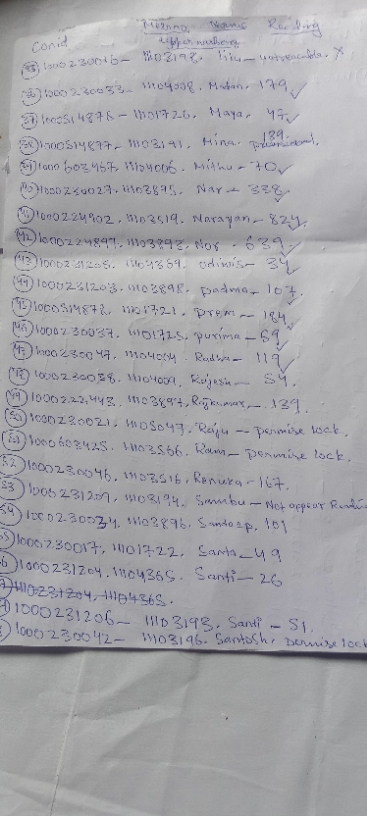 Conid Name Reading
35 1000230016- 11103198. - unreacable. X
36 1000230033- 11104008- Madan. 179 ✓
37 1000514876-1101726. Maya. 47 ✓
38 1000514877-1103191. Mina 189.
39 1000603467-11104006. Mithu - 70 ✓
40 1000230027.11103895. Nar - 338 ✓
41 1000224902.1103519. Narayan - 824 ✓
42 1000224897.11103893. Nor - 639 ✓
43 1000231205. 11104369. - 34 ✓
44 1000231203. 11103898. padma - 107 ✓
45 1000514878. 1101721. Prem - 184 ✓
46 1000230037. 1101725. purima - 69 ✓
47 1000230047. 11104004. Radha - 119 ✓
48 1000230038. 11104009. Rajesh - 54.
49 1000229,443. 11103897. Rajkumar - 139.
50 1000230021. 11105047. Raju - permise lock.
51 1000603425. 11103566. Ram - permise lock.
52 1000230046, 1103516. - 167.
53 1000231209, 11103194. Sambu - Not appear
54 1000230034, 11103896. Sandeep. 101
55 1000230017, 1101722. Santa - 49
1000231204, 11104365. Santi - 26
11104365.
1000231206 - 11103193. Santi - 51.
1000230042 - 11103196. Santosh. permise lock